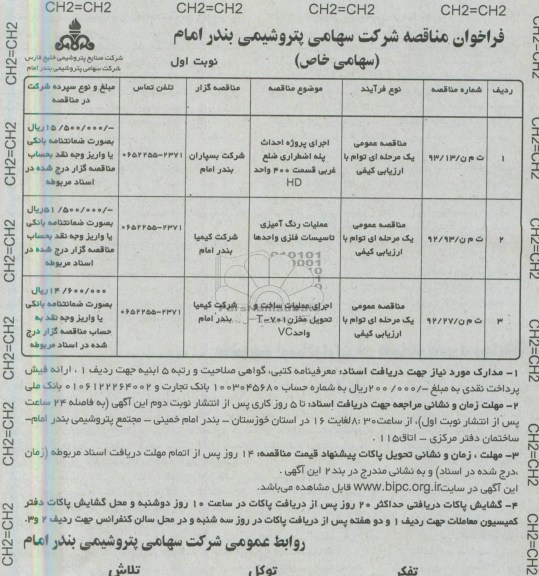 CH2=CH2 CH2=CH2 CH2=CH2 CH2=CH2
فراخوان مناقصه شرکت سهامی پتروشیمی بندر امام
(سهامی خاص)
نوبت اول
شرکت صنایع پتروشیمی خلیج فارس
شرکت سهامی پتروشیمی بندر امام
ردیف | شماره مناقصه | نوع فرآیند | موضوع مناقصه | مناقصه گزار | تلفن تماس | مبلغ و نوع سپرده شرکت در مناقصه
۱ | ت م ن/۹۳/۱۳ | مناقصه عمومی یک مرحله ای توام با ارزیابی کیفی | اجرای پروژه احداث پله اضطراری ضلع غربی قسمت ۳۰۰ واحد HD | شرکت بسپاران بندر امام | ۰۶۵۲۲۵۵-۲۳۷۱ | -/۱۵/۵۰۰/۰۰۰ریال بصورت ضمانتنامه بانکی یا واریز وجه نقد بحساب مناقصه گزار درج شده در اسناد مربوطه
۲ | ت م ن/۹۲/۹۳ | مناقصه عمومی یک مرحله ای توام با ارزیابی کیفی | عملیات رنگ آمیزی تاسیسات فلزی واحدها | شرکت کیمیا بندر امام | ۰۶۵۲۲۵۵-۲۳۷۱ | -/۵۱/۵۰۰/۰۰۰ریال بصورت ضمانتنامه بانکی یا واریز وجه نقد بحساب مناقصه گزار درج شده در اسناد مربوطه
۳ | ت م ن/۹۲/۲۷ | مناقصه عمومی یک مرحله ای توام با ارزیابی کیفی | اجرای عملیات ساخت و تحویل مخزن T-۷۰۱ واحدVC | شرکت کیمیا بندر امام | ۰۶۵۲۲۵۵-۲۳۷۱ | ۱۴/۶۰۰/۰۰۰ریال بصورت ضمانتنامه بانکی یا واریز وجه نقد به حساب مناقصه گزار درج شده در اسناد مربوطه
۱- مدارک مورد نیاز جهت دریافت اسناد: معرفینامه کتبی، گواهی صلاحیت و رتبه ۵ ابنیه جهت ردیف ۱ ، ارائه فیش
پرداخت نقدی به مبلغ -/۲۰۰/۰۰۰ریال به شماره حساب ۱۰۰۳۰۴۵۶۸۰ بانک تجارت و ۰۱۰۶۱۲۲۲۶۴۰۰۲ بانک ملی
۲- مهلت زمان و نشانی مراجعه جهت دریافت اسناد: تا ۵ روز کاری پس از انتشار نوبت دوم این آگهی (به فاصله ۲۴ ساعت
پس از انتشار نوبت اول)، از ساعت۸:۳۰ لغایت ۱۶ در استان خوزستان – بندر امام خمینی – مجتمع پتروشیمی بندر امام-
ساختمان دفتر مرکزی – اتاق۱۱۵ .
۳- مهلت ، زمان و نشانی تحویل پاکات پیشنهاد قیمت مناقصه: ۱۴ روز پس از اتمام مهلت دریافت اسناد مربوطه (زمان
درج شده در اسناد) و به نشانی مندرج در بند ۲ این آگهی .
این آگهی در سایتwww.bipc.org.ir قابل مشاهده می‌باشد.
۴- گشایش پاکات دریافتی حداکثر ۲۰ روز پس از دریافت پاکات در ساعت ۱۰ روز دوشنبه و محل گشایش پاکات دفتر
کمیسیون معاملات جهت ردیف ۱ و دو هفته پس از دریافت پاکات در روز سه شنبه و در محل سالن کنفرانس جهت ردیف ۲ و۳.
روابط عمومی شرکت سهامی پتروشیمی بندر امام
تفکر توکل تلاش
CH2=CH2 CH2=CH2 CH2=CH2 CH2=CH2 CH2=CH2
CH2=CH2 CH2=CH2 CH2=CH2 CH2=CH2 CH2=CH2